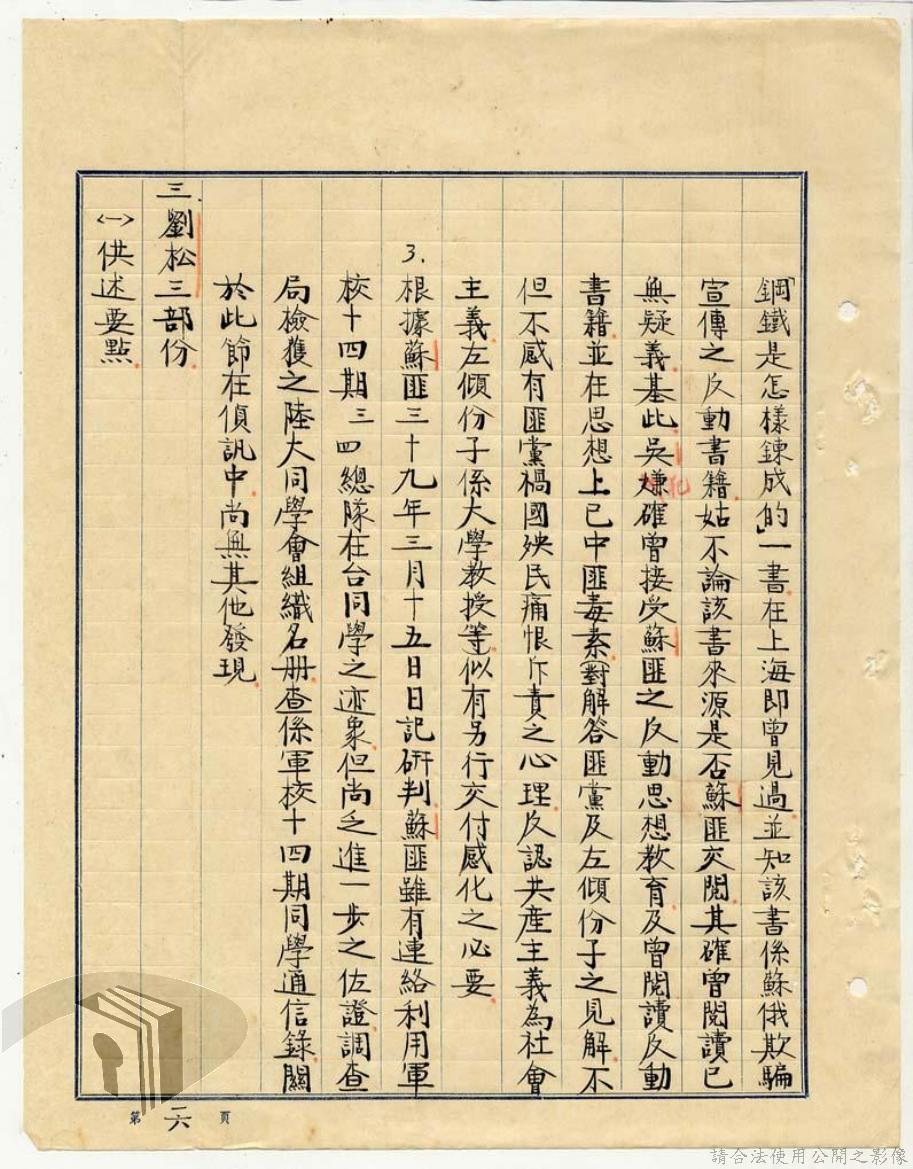 「鋼鐵是怎樣鍊成的」一書在上海即曾見過並知該書係蘇俄欺騙
宣傳之反動書籍姑不論該書來源是否蘇匪交閱其確曾閱讀已
無疑義基此吳嫌確曾接受蘇匪之反動思想教育及曾閱讀反動
書籍並在思想上已中匪毒素(對解答匪黨及左傾份子之見解不
但不感有匪黨禍國殃民痛恨斥責之心理反認共產主義為社會
主義左傾份子係大學教授等)似有另行交付感化之必要
3.根據蘇匪三十九年三月十五日日記研判蘇匪雖有連絡利用軍
校十四期三四總隊在台同學之迹象但尚乏進一步之佐證調查
局檢獲之陸大同學會組織名册查係軍校十四期同學通信錄關
於此節在偵訊中尚無其他發現
三劉松三部份
<一>供述要點
第二六頁
請合法使用公開之影像